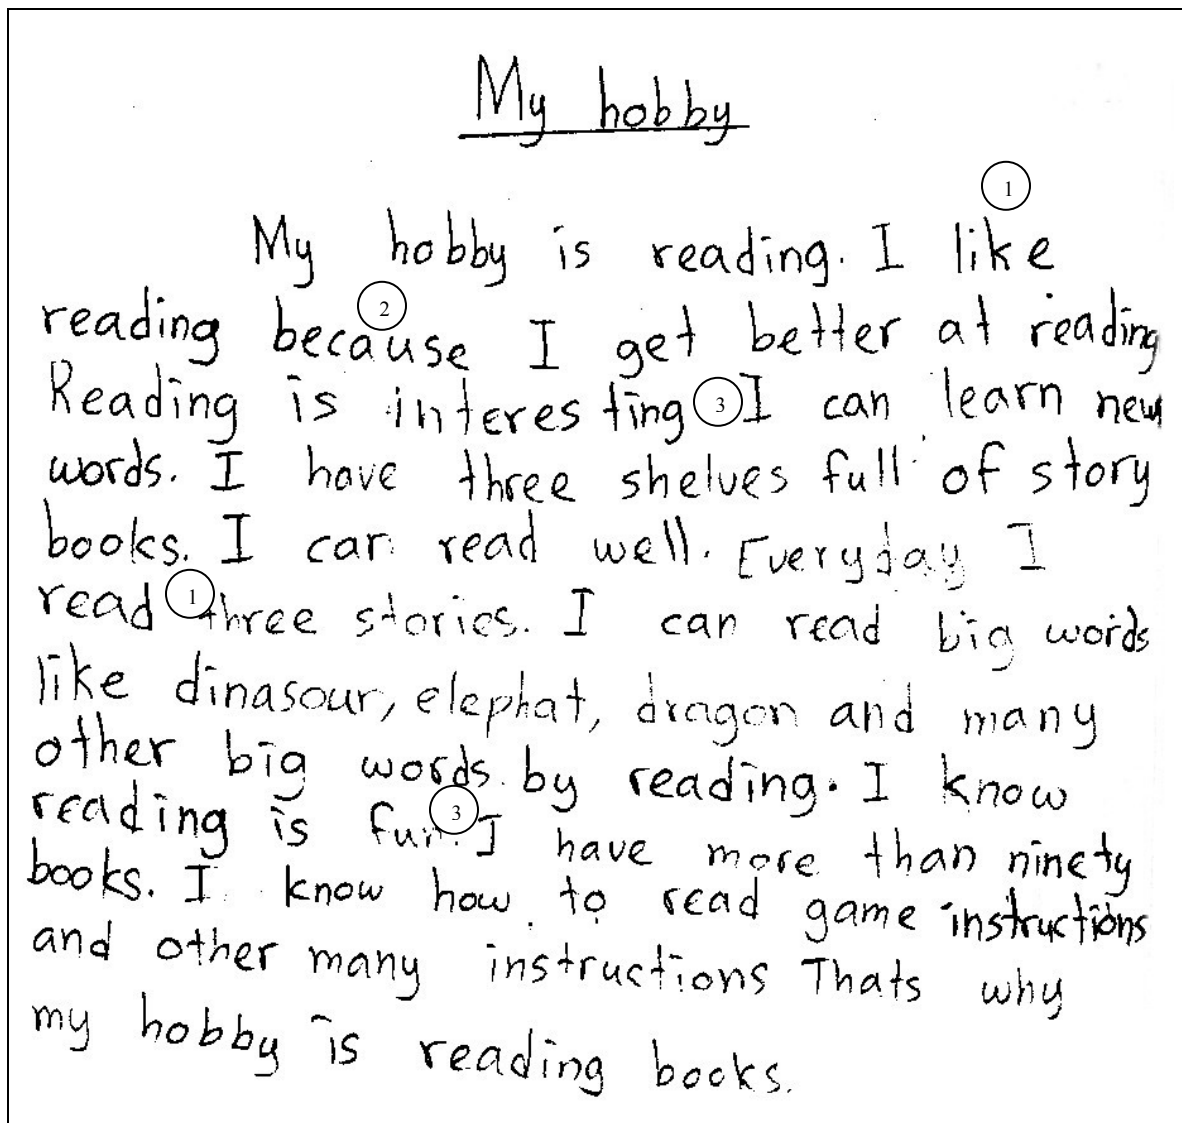 My hobby
1
My hobby is reading. I like
2
reading because I get better at reading
Reading is interesting 3 I can learn new
words. I have three shelves full of story
books. I can read well. Everyday I
read 1 three stories. I can read big words
like dinasour, elephat, dragon and many
other big words by reading. I know
reading is fun. 3 I have more than ninety
books. I know how to read game instructions
and other many instructions Thats why
my hobby is reading books.